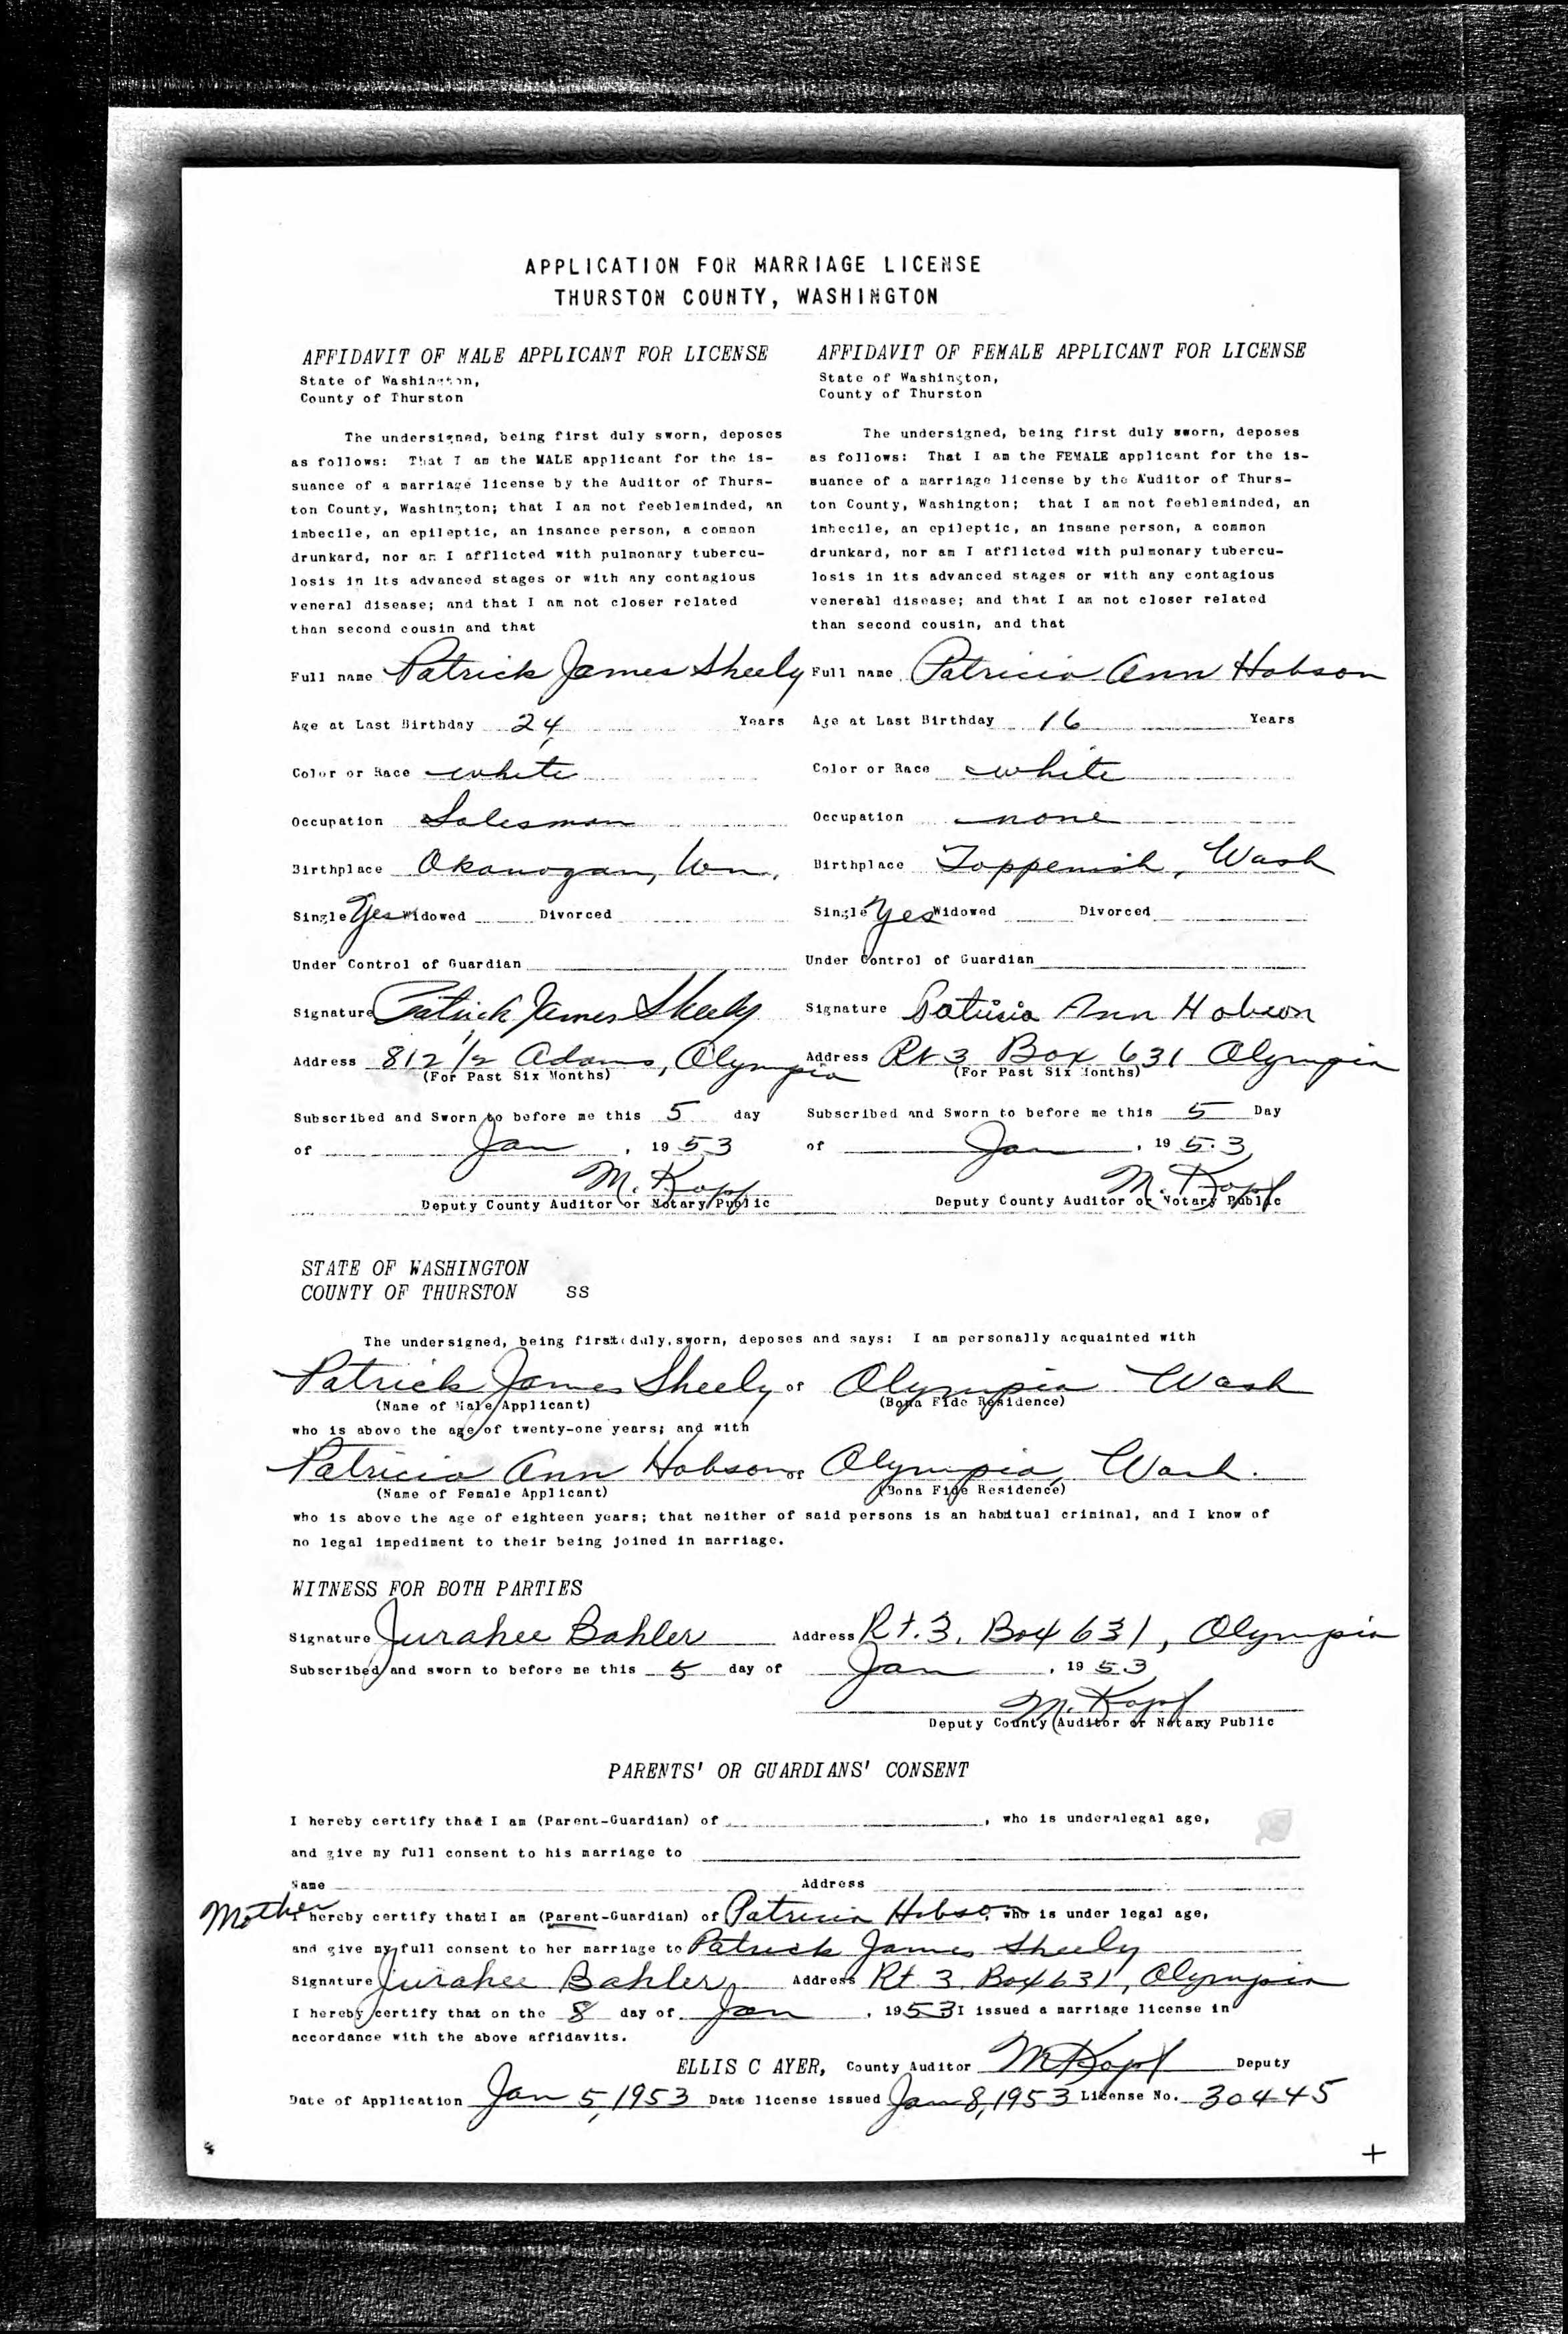 APPLICATION FOR MARRIAGE LICENSE
THURSTON COUNTY, WASHINGTON
AFFIDAVIT OF MALE APPLICANT FOR LICENSE
State of Washington,
County of Thurston
The undersigned, being first duly sworn, deposes
as follows: That I am the MALE applicant for the is-
suance of a marriage license by the Auditor of Thurs-
ton County, Washington; that I am not feebleminded, an
imbecile, an epileptic, an insance person, a common
drunkard, nor am I afflicted with pulmonary tubercu-
losis in its advanced stages or with any contagious
veneral disease; and that I am not closer related
than second cousin and that
Full name Patrick James Sheely
Age at Last Birthday 24 Years
Color or Race white
Occupation Salesman
Birthplace Okanogan, Wn.
Single Yes Widowed Divorced
Under Control of Guardian
Signature Patrick James Sheely
Address 812 1/2 Adams, Olympia
(For Past Six Months)
Subscribed and Sworn to before me this 5 day
of Jan, 1953
M. Kopf
Deputy County Auditor or Notary Public
AFFIDAVIT OF FEMALE APPLICANT FOR LICENSE
State of Washington,
County of Thurston
The undersigned, being first duly sworn, deposes
as follows: That I am the FEMALE applicant for the is-
suance of a marriage license by the Auditor of Thurs-
ton County, Washington; that I am not feebleminded, an
imbecile, an epileptic, an insane person, a common
drunkard, nor am I afflicted with pulmonary tubercu-
losis in its advanced stages or with any contagious
venereal disease; and that I am not closer related
than second cousin, and that
Full name Patricia Ann Hobson
Age at Last Birthday 16 Years
Color or Race white
Occupation none
Birthplace Toppenish, Wash
Single Yes Widowed Divorced
Under Control of Guardian
Signature Patricia Ann Hobson
Address Rt 3 Box 631 Olympia
(For Past Six Months)
Subscribed and Sworn to before me this 5 Day
of Jan, 1953
M. Kopf
Deputy County Auditor or Notary Public
STATE OF WASHINGTON
COUNTY OF THURSTON SS
The undersigned, being first duly sworn, deposes and says: I am personally acquainted with
Patrick James Sheely of Olympia Wash
(Name of Male Applicant) (Bona Fide Residence)
who is above the age of twenty-one years; and with
Patricia Ann Hobson of Olympia, Wash.
(Name of Female Applicant) (Bona Fide Residence)
who is above the age of eighteen years; that neither of said persons is an habitual criminal, and I know of
no legal impediment to their being joined in marriage.
WITNESS FOR BOTH PARTIES
Signature Jurahee Bahler Address Rt. 3, Box 631, Olympia
Subscribed and sworn to before me this 5 day of Jan, 1953
M. Kopf
Deputy County Auditor or Notary Public
PARENTS' OR GUARDIANS' CONSENT
I hereby certify that I am (Parent-Guardian) of , who is under legal age,
and give my full consent to his marriage to
Name Address
Mother I hereby certify that I am (Parent-Guardian) of Patricia Hobson, who is under legal age,
and give my full consent to her marriage to Patrick James Sheely
Signature Jurahee Bahler Address Rt. 3 Box 631, Olympia
I hereby certify that on the 8 day of Jan, 1953 I issued a marriage license in
accordance with the above affidavits.
ELLIS C AYER, County Auditor M Kopf Deputy
Date of Application Jan 5, 1953 Date license issued Jan 8, 1953 License No. 30445